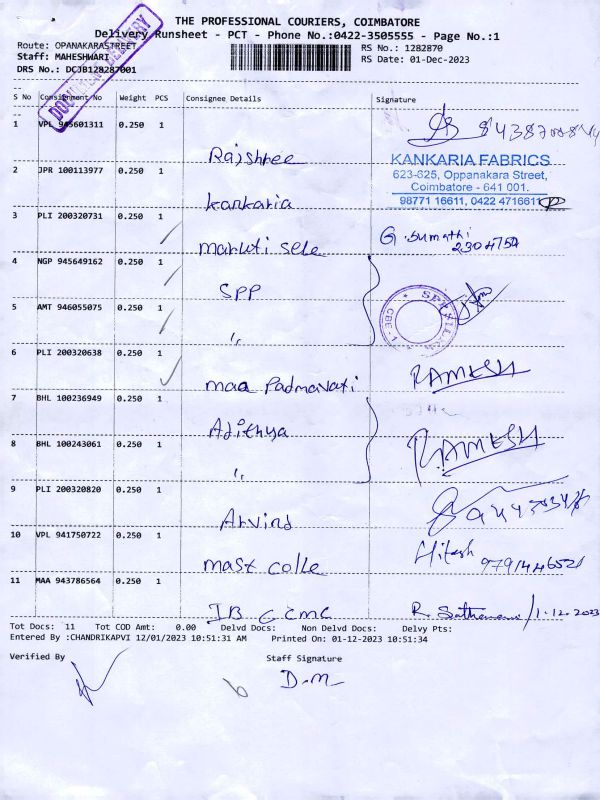 THE PROFESSIONAL COURIERS, COIMBATORE
Delivery Runsheet - PCT - Phone No.:0422-3505555 - Page No.:1
Route: OPANAKARASTREET RS No.: 1282870
Staff: MAHESHWARI RS Date: 01-Dec-2023
DRS No.: DCJB128287001
DOX DELIVERY
S No Consignment No Weight PCS Consignee Details Signature
1 VPL 945601311 0.250 1 Rajshree
2 JPR 100113977 0.250 1 Kankaria
KANKARIA FABRICS
623-625, Oppanakara Street,
Coimbatore - 641 001.
98771 16611, 0422 4716611
3 PLI 200320731 0.250 1 maruti sele G. Sumathi
4 NGP 945649162 0.250 1 SPP
CBE-1
5 AMT 946055075 0.250 1 "
6 PLI 200320638 0.250 1 maa Padmavati RAMESH
7 BHL 100236949 0.250 1 Adithya
8 BHL 100243061 0.250 1 " RAMESH
9 PLI 200320820 0.250 1 Arvind
10 VPL 941750722 0.250 1 mast colle Hitesh
11 MAA 943786564 0.250 1 1-12-2023
Tot Docs: 11 Tot COD Amt: 0.00 Delvd Docs: Non Delvd Docs: Delvy Pts:
Entered By :CHANDRIKAPVI 12/01/2023 10:51:31 AM Printed On: 01-12-2023 10:51:34
Verified By Staff Signature
D.M